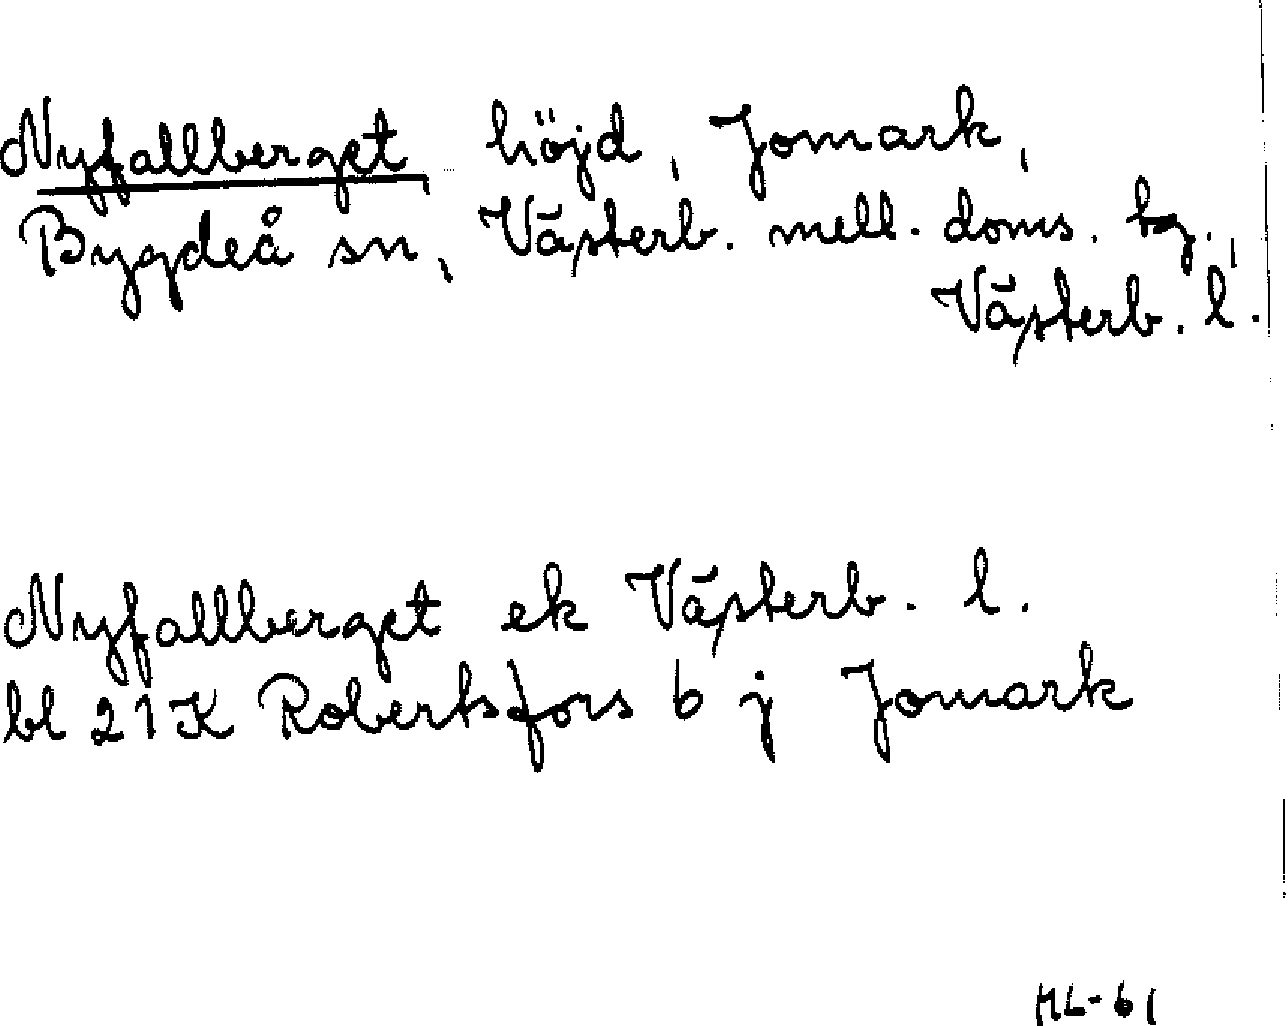 Nyfallberget, höjd, Jomark,
Bygdeå sn, Västerb. mell. doms. tg.,
Västerb. l.
Nyfallberget ek Västerb. l.
bl 21K Robertsfors 6 j Jomark
HL-61